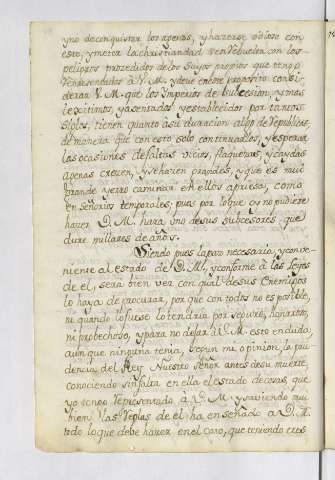 y no de conquistar los agenos, y hazerse odioso con
esto, y meter la christiandad rebuelta con los
peligros procedidos de los suyos propios que tengo
representados à V. M. y deve en este proposito consi-
derar V. M. que los Imperios de succession, y mas
lexitimos, y asentados y establecidos por tantos
siglos, tienen quanto à su duracion algo de Republicas
de manera que con esto solo continuados, y esperar
las ocasiones de faltas, vicios, flaquezas, y caydas
agenas crecen, y se hacen grandes, y que es muy
grande yerro caminar en ellos apriesa, como
en Señorios temporales, pues por lo que yo no pudiere
haver V. M. hara uno de sus subcesores, que
dure millares de años.
Siendo pues la paz necesaria, y conve-
niente al estado de V. M., y conforme à las Leyes
de el, sera bien ver con qual de sus Enemigos
lo haya de procurar, por que con todos no es posible,
ni quando lo fuese lo tendria por seguro, honroso,
ni probechoso, y para no dejar à V. M. esto en duda,
aunque ninguna tenia, segun mi opinion, la pru-
dencia del Rey Nuestro Señor antes de su muerte,
conociendo sin falta en ella el estado de cosas, que
yo tengo representado à V. M. y sabiendo muy
bien las Reglas de el ha enseñado à V. M.
todo lo que debe hazer en el caso, que teniendo tres